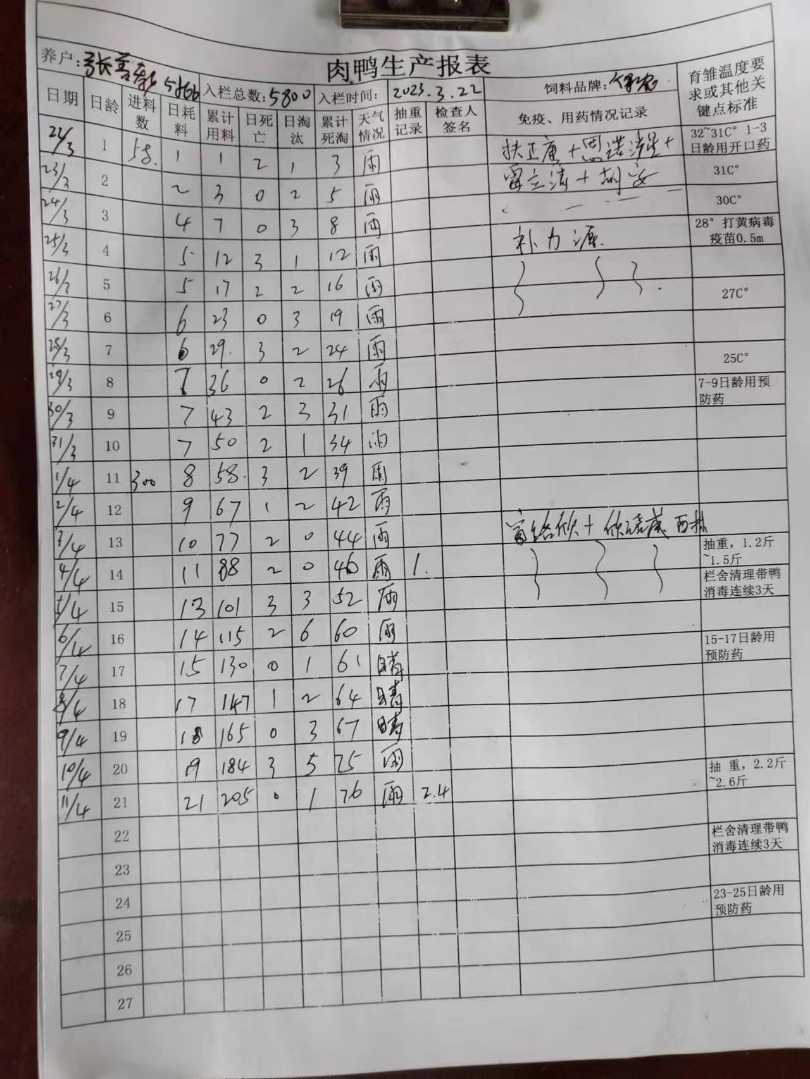 肉鸭生产报表
养户: 入栏总数:5800 入栏时间: 2023.3.22 饲料品牌: 育雏温度要求或其他关键点标准
日期 日龄 进料数 日耗料 累计用料 日死亡 日淘汰 累计死淘 天气情况 抽重记录 检查人签名 免疫、用药情况记录
22/3 1 58. 1 1 2 1 3 雨 扶正康+ 32~31C° 1-3日龄用开口药
23/3 2 2 3 0 2 5 雨 31C°
24/3 3 4 7 0 3 8 雨 30C°
25/3 4 5 12 3 1 12 雨 补力源. 28° 打黄病毒疫苗0.5m
26/3 5 5 17 2 2 16 雨 27C°
27/3 6 6 23 0 3 19 雨
28/3 7 6 29. 3 2 24 雨 25C°
29/3 8 7 36 0 2 26 雨 7-9日龄用预防药
30/3 9 7 43 2 3 31 雨
31/3 10 7 50 2 1 34 雨
1/4 11 300 8 58. 3 2 39 雨
2/4 12 9 67 1 2 42 雨
3/4 13 10 77 2 0 44 雨 抽重，1.2斤~1.5斤
4/4 14 11 88 2 0 46 雨 1. 栏舍清理带鸭消毒连续3天
5/4 15 13 101 3 3 52 雨
6/4 16 14 115 2 6 60 雨 15-17日龄用预防药
7/4 17 15 130 0 1 61 晴
8/4 18 17 147 1 2 64 晴
9/4 19 18 165 0 3 67 晴
10/4 20 19 184 3 5 75 雨 抽 重，2.2斤~2.6斤
11/4 21 21 205 0 1 76 雨 2.4
22 栏舍清理带鸭消毒连续3天
23
24 23-25日龄用预防药
25
26
27